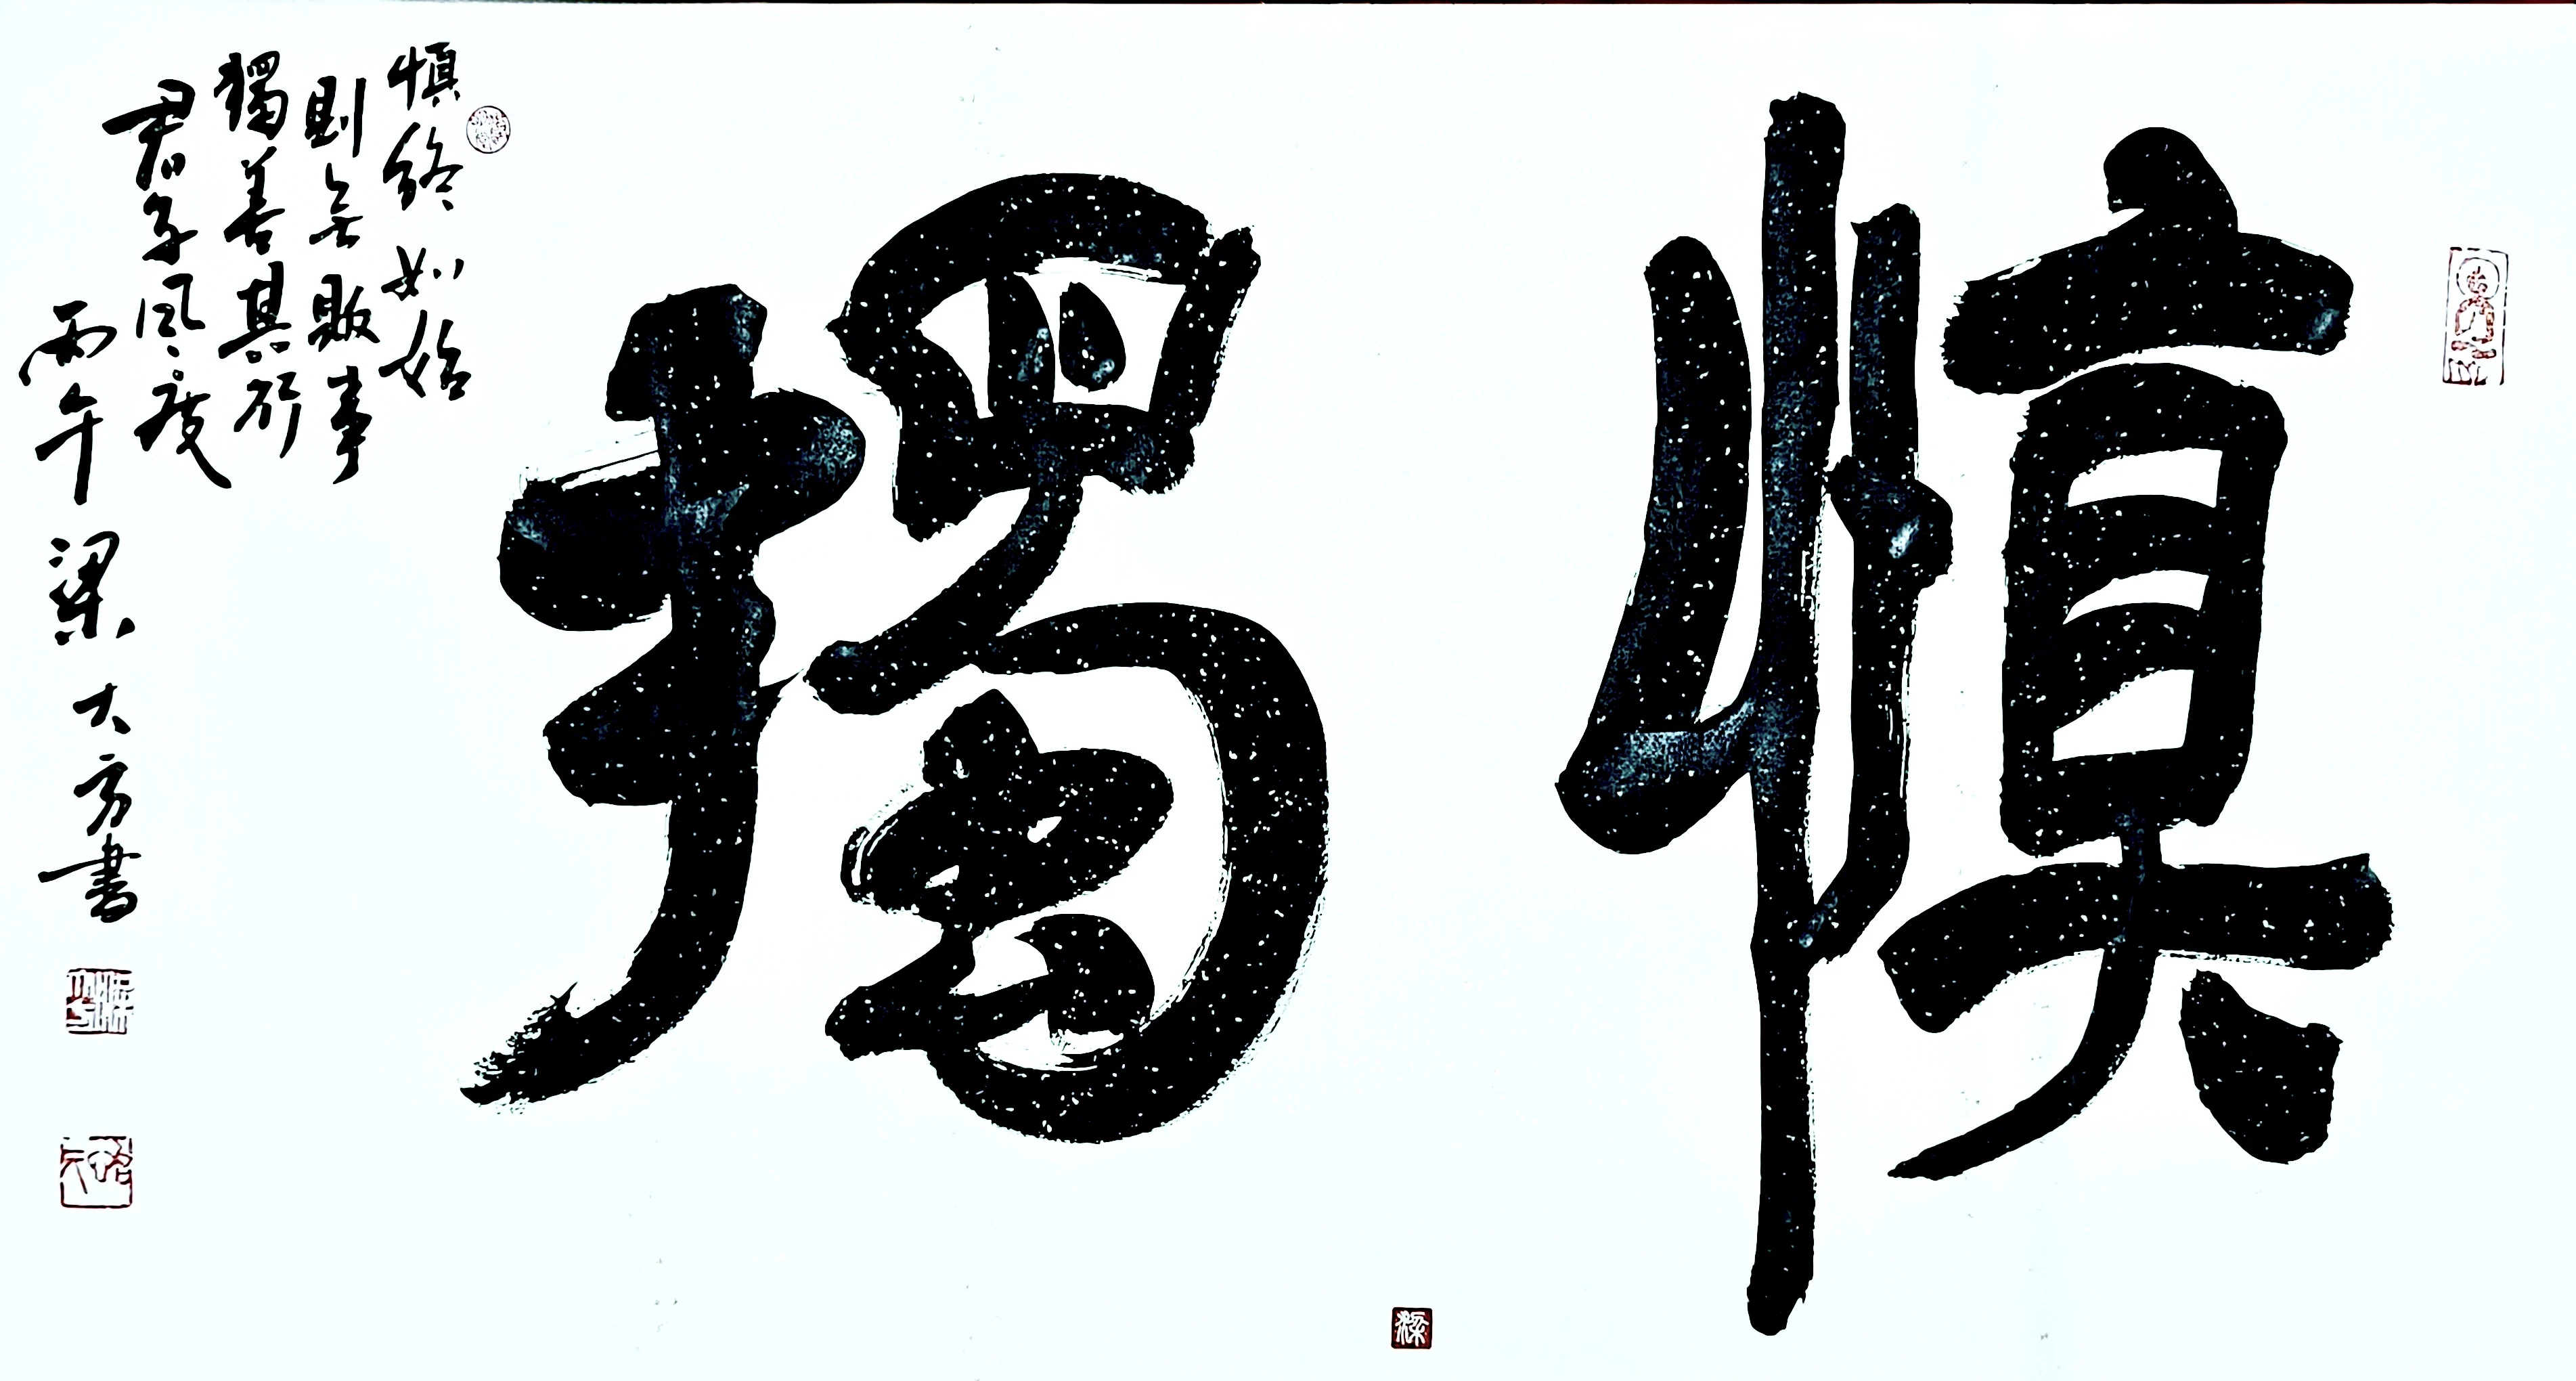 慎獨
慎終如始
則無敗事
獨善其行
君子風度
丙午梁大方書
梁